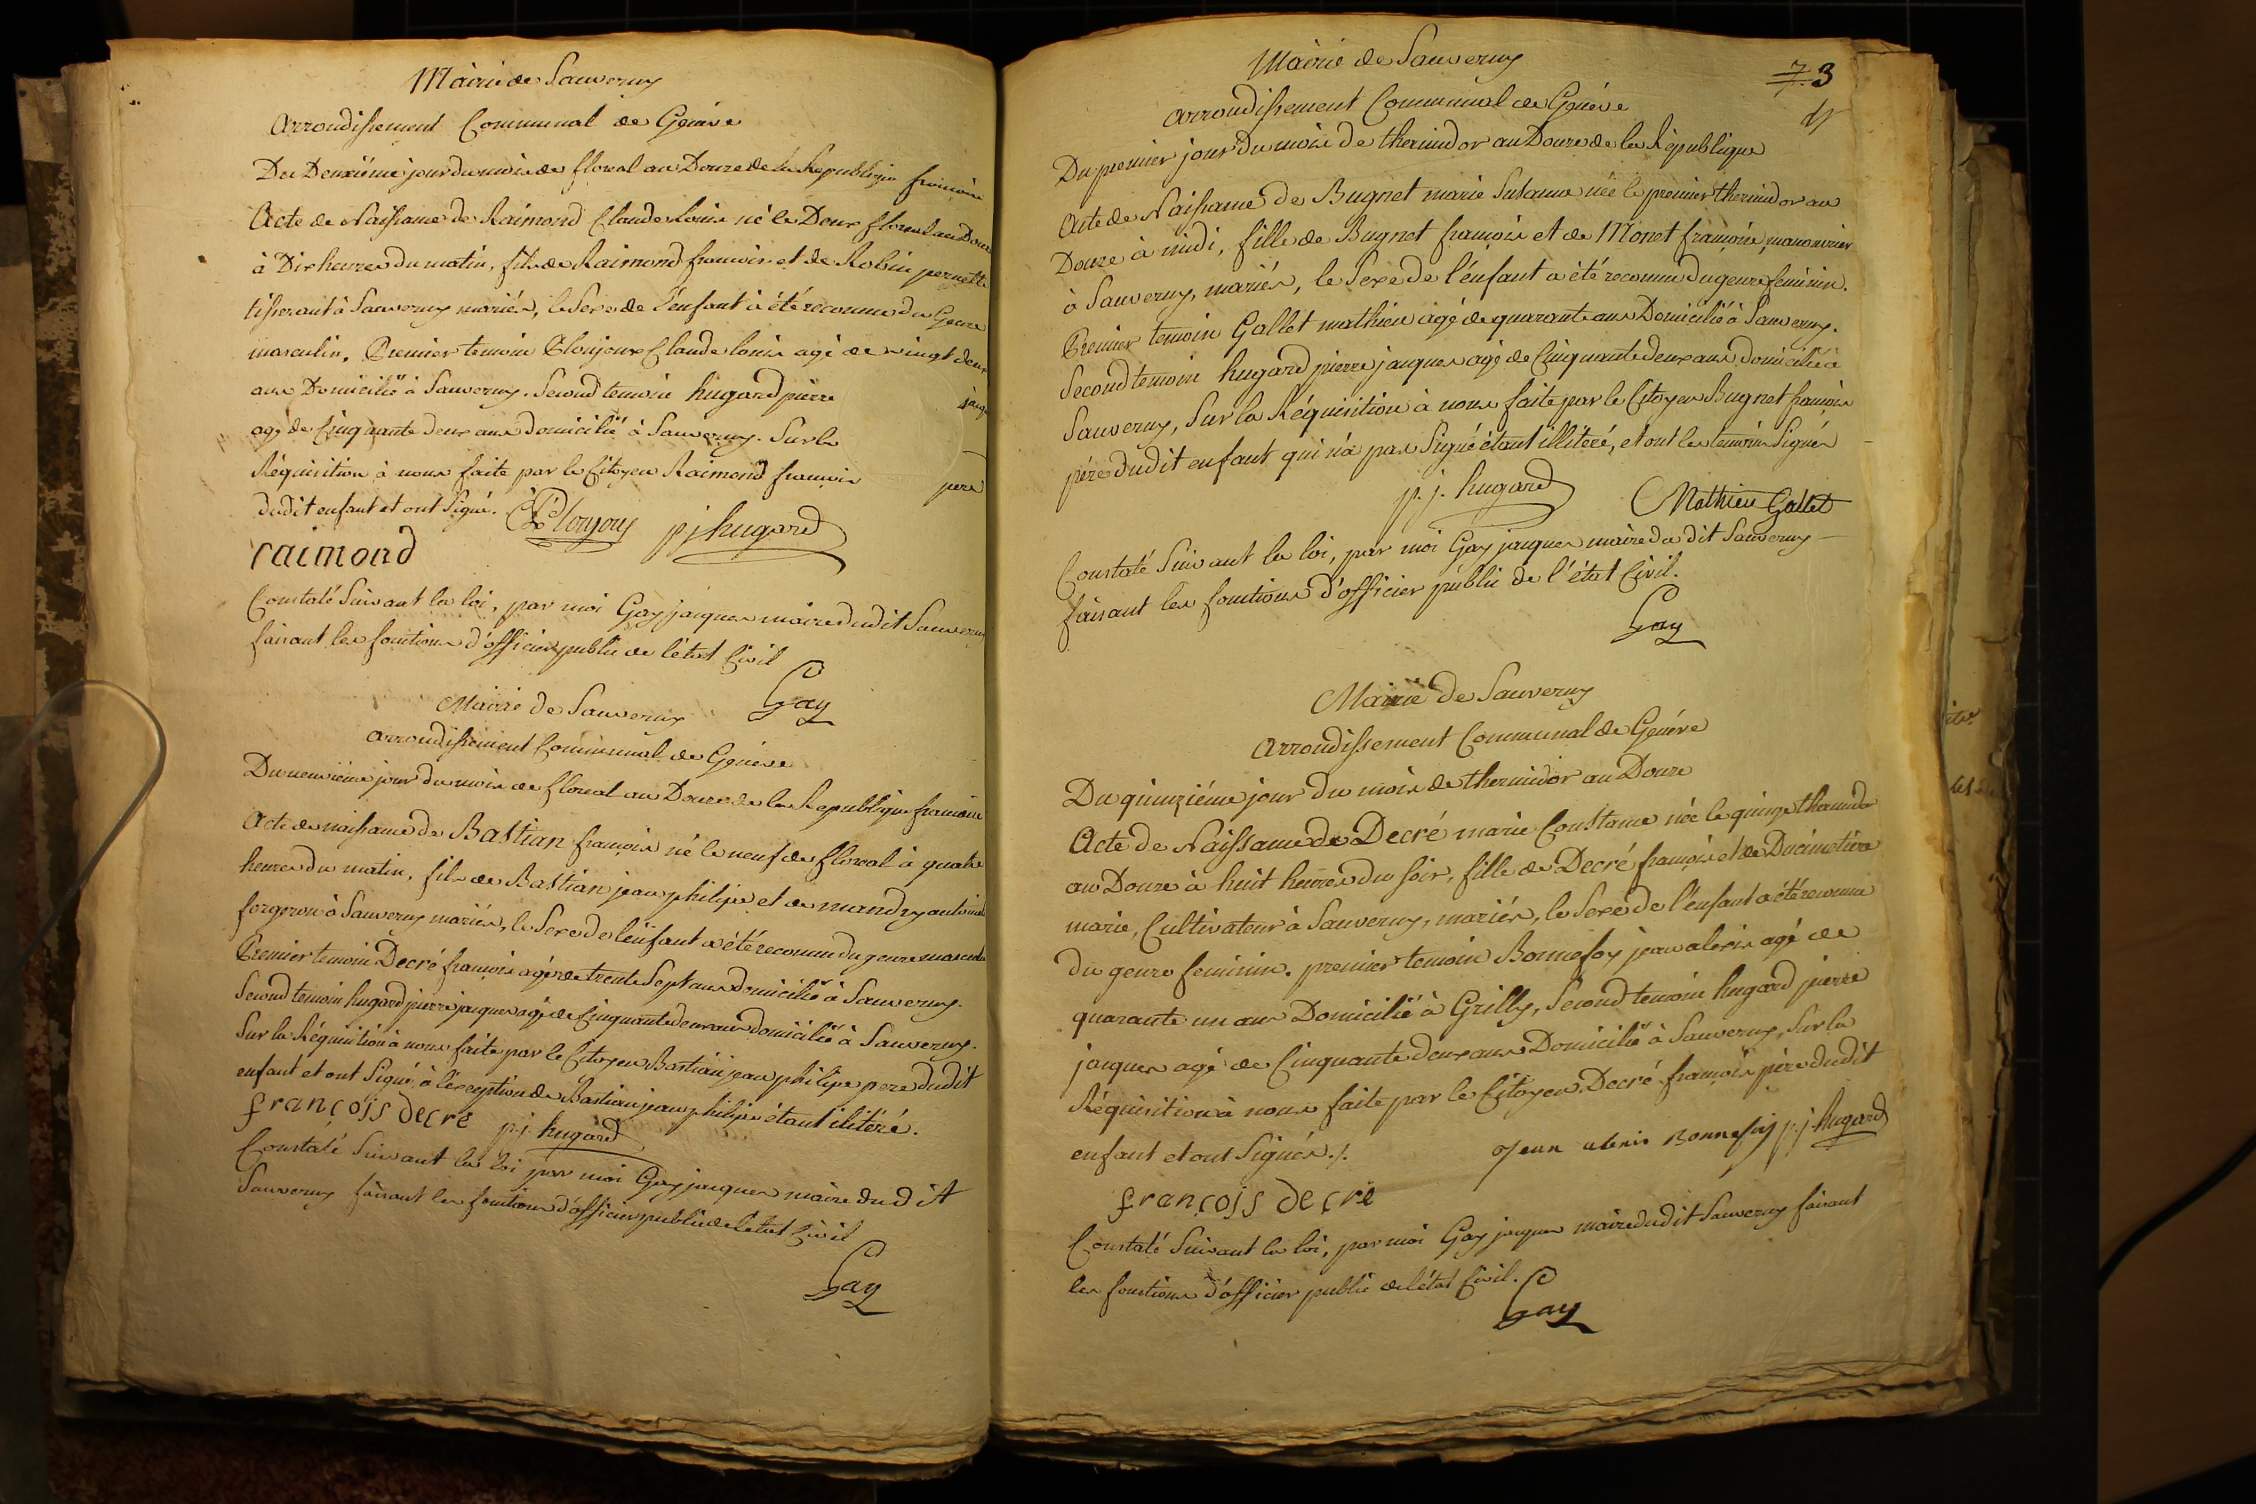 Mairie de Sauverny
Arrondissement Communal de Genève
Du Deuxiéme jour du mois de floreal an Douze de la Republique francoise
Acte de Naissance de Raimond Claude Louis né le Deux floreal an Douze
à Dix heures du matin, fils de Raimond francois et de Robin pernette
tisserant à Sauverny mariés, le Sexe de l'enfant à été reconnu du Genre
masculin. Premier temoin Plonjoux Claude louis agé de vingt deux
ans Domicilié à Sauverny. Second temoin hugard pierre jacq
agé de Cinquante deux ans domicilié à Sauverny. Sur la
Réquisition à nous faite par le Citoyen Raimond francois pere
dudit enfant et ont Signé. p j hugard
raimond
Constaté Suivant la loi, par moi Gay jacques maire dudit Sauverny
faisant les fonctions d'officier public de létat Civil
Gay
Mairie de Sauverny
arrondissement Communal de Genève
Du neuvième jour du mois de floreal an Douze de la Republique francoise
Acte de naissance de Bastian françois né le neuf de floreal à quatre
heures du matin, fils de Bastian jean philipe et de mandry antoinette
forgeron à Sauverny mariés, le Sexe de l'enfant a été reconnu du genre masculin
Premier temoin Decré françois agé de trente Sept ans Domicilié à Sauverny.
Second temoin hugard pierre jacques agé de Cinquante deux ans domicilié à Sauverny.
Sur la Réquisition à nous faite par le Citoyen Bastian jean philipe pere dudit
enfant et ont Signé, à l'exception de Bastian jean philipe étant ilitéré.
françois decre p.j. hugard
Constaté Suivant la loi par moi Gay jacques maire dudit
Sauverny faisant les fonctions d'officier public de létat Civil
Gay
Mairie de Sauverny
73
arrondissement Communal de Genéve
Du premier jour du mois de thermidor an Douze de la République
Acte de Naissance de Bugnet marie Susanne née le premier thermidor an
Douze à midi, fille de Bugnet françois et de Monet françoise, manouvrier
à Sauverny, mariés, le Sexe de l'enfant a été reconnu du genre feminin.
Premier temoin Gallet mathieu agé de quarante ans Domicilié à Sauverny.
Second temoin hugard pierre jacques agé de Cinquante deux ans domicilié à
Sauverny, Sur la Réquisition à nous faite par le Citoyen Bugnet françois
pére dudit enfant qui n'a pas Signé étant illiteré, et ont les temoins Signés
p. j. hugard Mathieu Gallet
Constaté Suivant la loi, par moi Gay jacques maire du dit Sauverny
faisant les fonctions d'officier public de l'état Civil.
Gay
Mairie de Sauverny
arrondissement Communal de Genéve
Du quinziéme jour du mois de thermidor an Douze
Acte de Naissance de Decré marie Constance née le quinze thermidor
an Douze à huit heures du soir, fille de Decré françois et de Ducimetière
marie, Cultivateur à Sauverny, mariés, le Sexe de l'enfant a été reconnu
du genre feminin. premier temoin Bonnefoy jean alexis agé de
quarante un ans Domicilié à Grilly, Second temoin hugard pierre
jacques agé de Cinquante deux ans Domicilié à Sauverny, Sur la
Réquisition à nous faite par le Citoyen Decré françois père dudit
enfant et ont Signés ./. Jean alexis Bonnefoy p. j. hugard
françois decre
Constaté Suivant la loi, par moi Gay jacques maire dudit Sauverny faisant
les fonctions d'officier public de létat Civil.
Gay